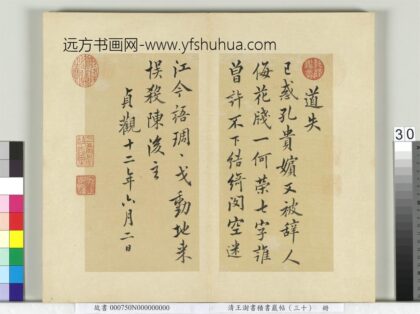 远方书画网-www.yfshuhua.com
道失
已惑孔貴嬪又被辞人
侮花牋一何榮七字誰
曾許不下結綺閣空迷
江令語琱戈動地来
悮殺陳後主
貞觀十二年六月二日
30
故書 000750N000000000
清王澍書積書巖帖(三十) 冊